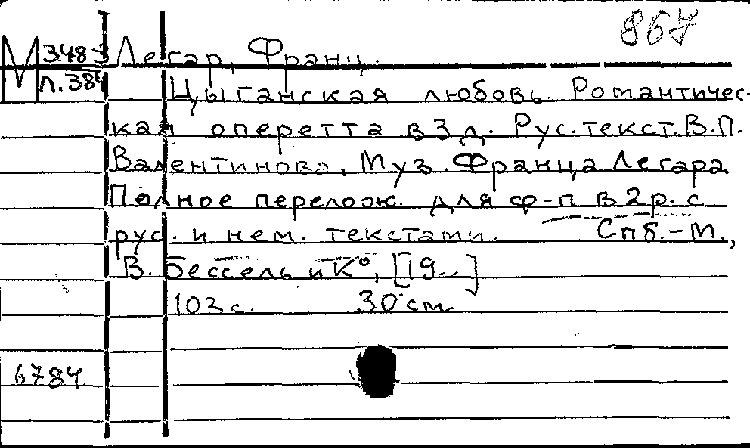 867
М 3483 Легар, Франц.
Л.384 Цыганская любовь. Романтичес-
кая оперетта в 3 д. Рус. текст. В.П.
Валентинова. Муз. Франца Легара
Полное перелож. для ф-п в 2 р. с
рус. и нем. текстами. Спб.-М.,
В. Бессель и К°, [19..]
102 с. 30 см
6784